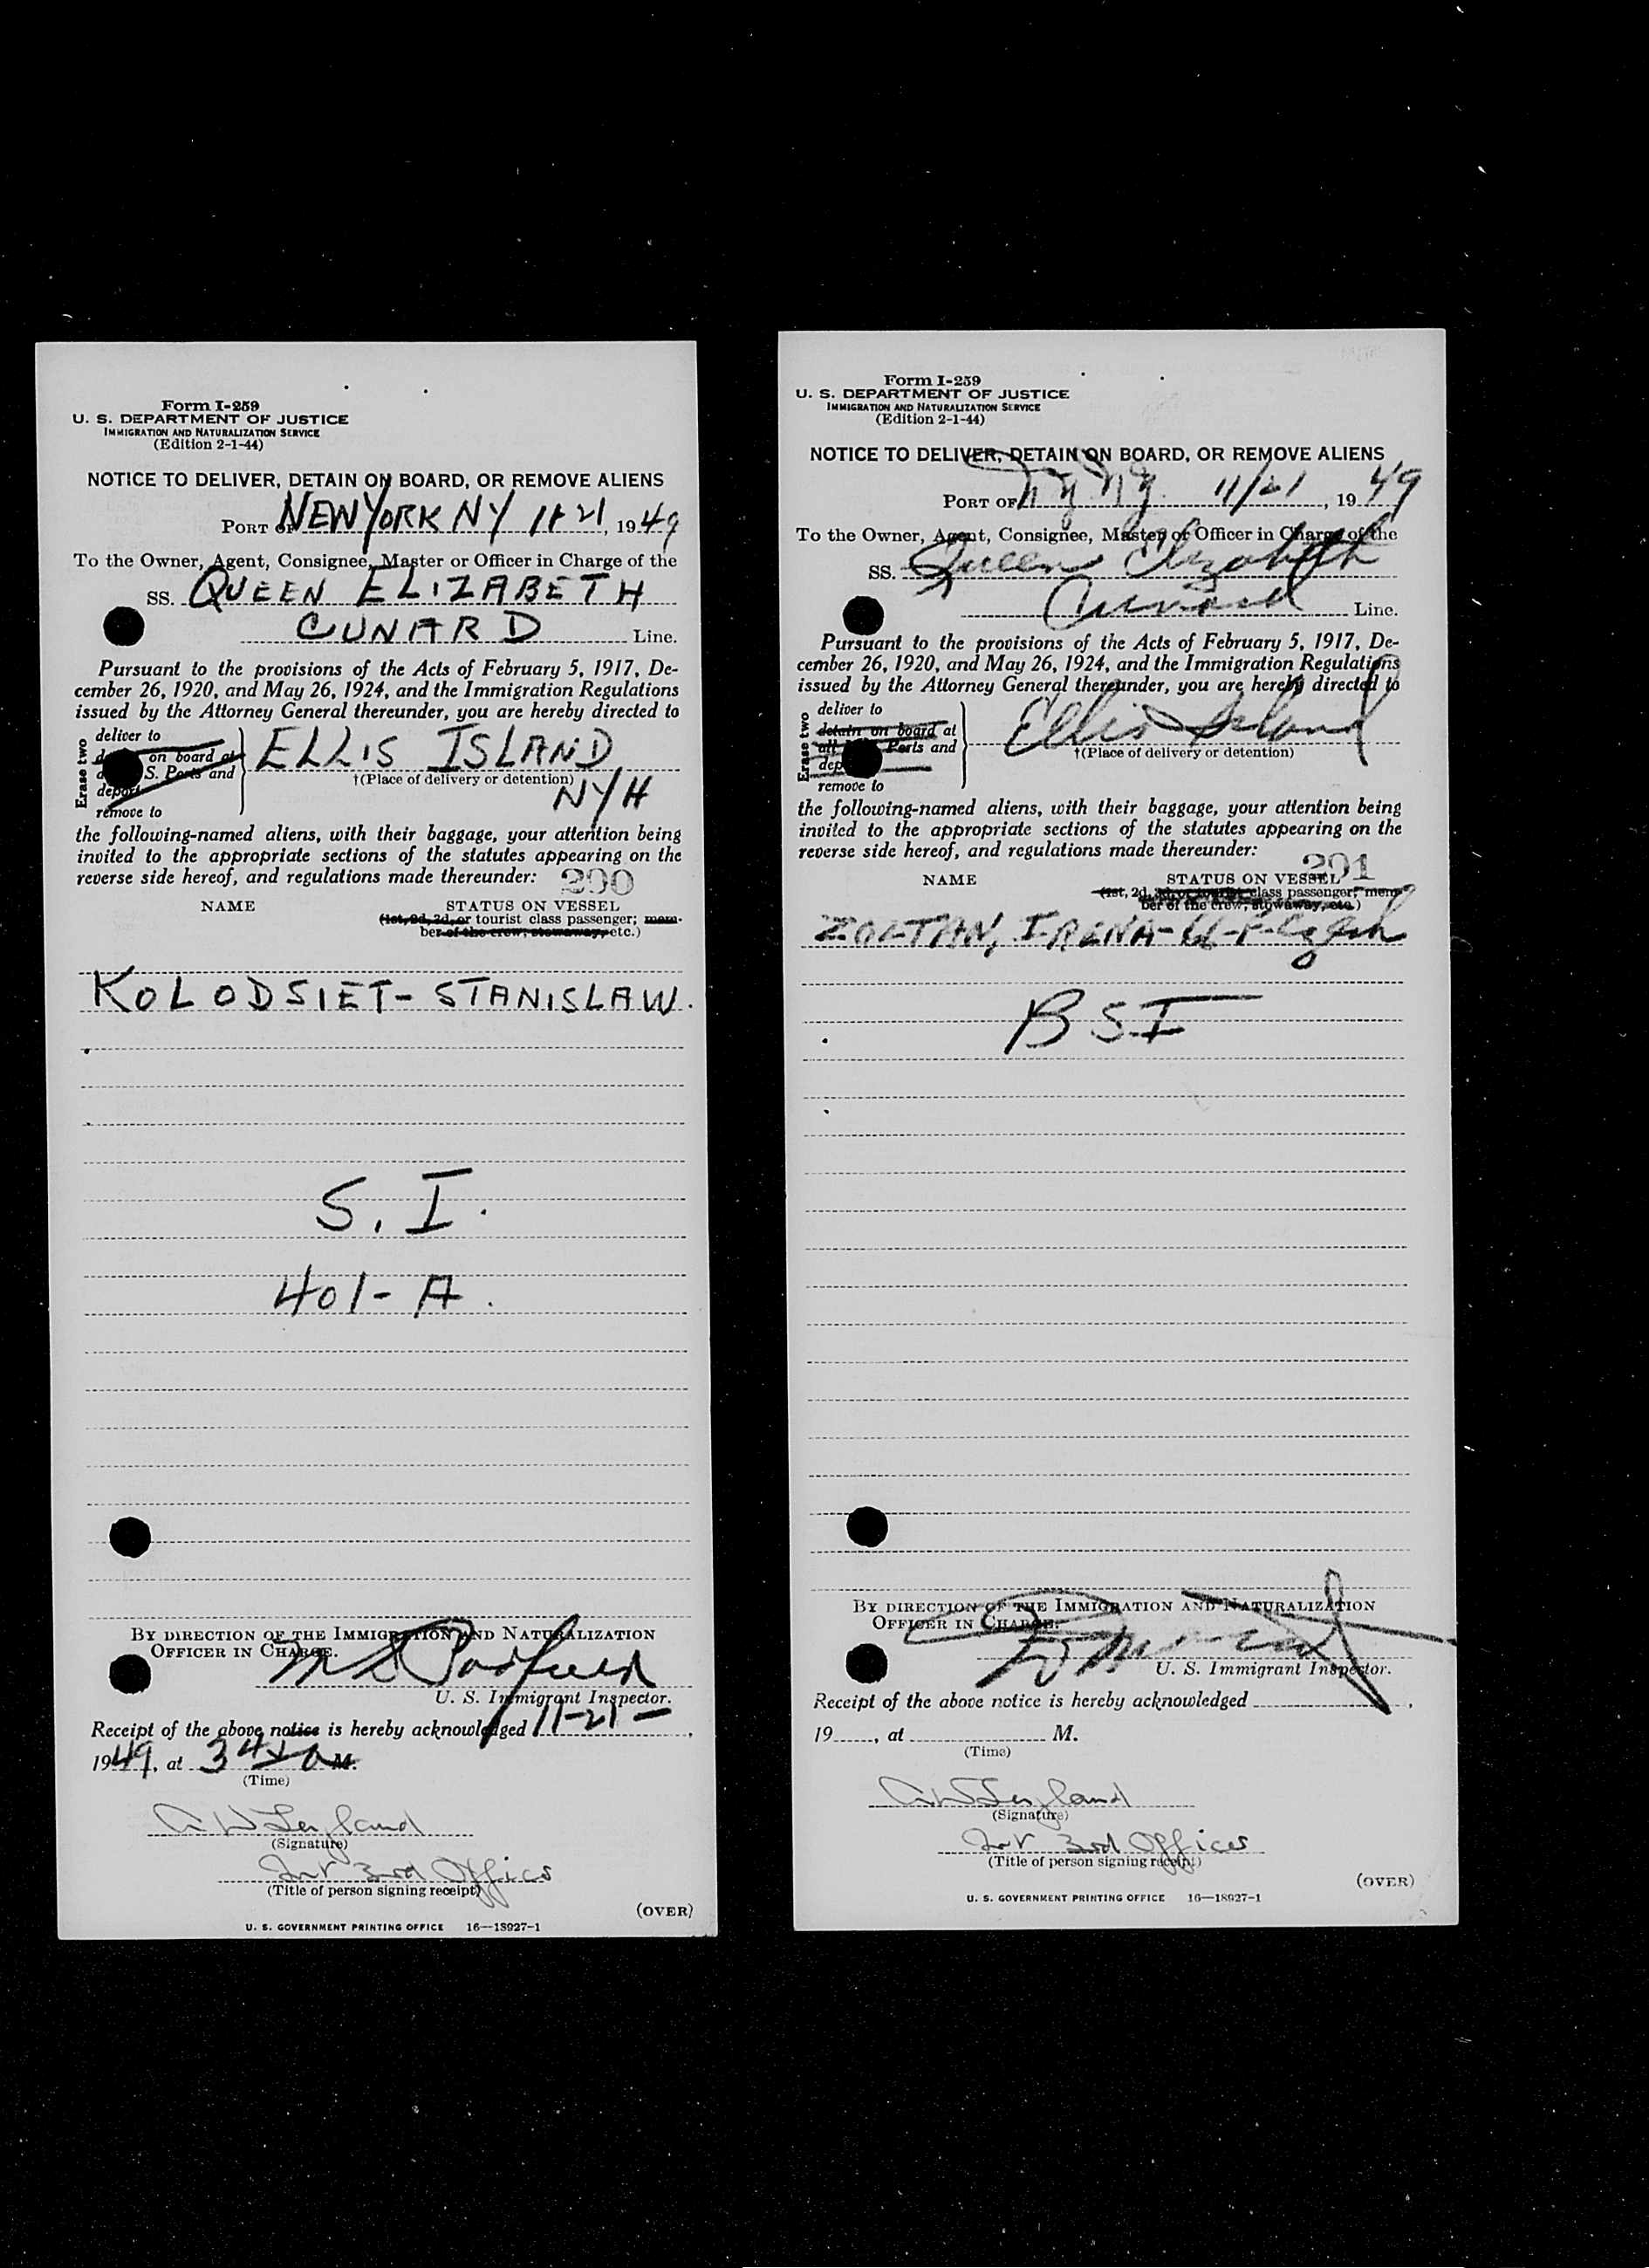 Form I-259
U. S. DEPARTMENT OF JUSTICE
IMMIGRATION AND NATURALIZATION SERVICE
(Edition 2-1-44)
NOTICE TO DELIVER, DETAIN ON BOARD, OR REMOVE ALIENS
PORT OF NEW YORK NY 11 21, 1949
To the Owner, Agent, Consignee, Master or Officer in Charge of the
SS. QUEEN ELIZABETH
CUNARD Line.
Pursuant to the provisions of the Acts of February 5, 1917, De-
cember 26, 1920, and May 26, 1924, and the Immigration Regulations
issued by the Attorney General thereunder, you are hereby directed to
Erase two
deliver to
on board at
S. Ports and
deport
remove to
ELLIS ISLAND
†(Place of delivery or detention)
NYH
the following-named aliens, with their baggage, your attention being
invited to the appropriate sections of the statutes appearing on the
reverse side hereof, and regulations made thereunder: 290
NAME STATUS ON VESSEL
(1st, 2d, 3d, or tourist class passenger; mem-
ber of the crew; stowaway, etc.)
KOLODSIET - STANISLAW.
S. I.
401-A.
BY DIRECTION OF THE IMMIGRATION AND NATURALIZATION
OFFICER IN CHARGE.
U. S. Immigrant Inspector.
Receipt of the above notice is hereby acknowledged 11-21-,
1949, at 3 M.
(Time)
(Signature)
3rd Officer
(Title of person signing receipt)
(OVER)
U. S. GOVERNMENT PRINTING OFFICE 16—18927-1
Form I-259
U. S. DEPARTMENT OF JUSTICE
IMMIGRATION AND NATURALIZATION SERVICE
(Edition 2-1-44)
NOTICE TO DELIVER, DETAIN ON BOARD, OR REMOVE ALIENS
PORT OF N Y N Y 11/21, 1949
To the Owner, Agent, Consignee, Master or Officer in Charge of the
SS. Queen Elizabeth
Cunard Line.
Pursuant to the provisions of the Acts of February 5, 1917, De-
cember 26, 1920, and May 26, 1924, and the Immigration Regulations
issued by the Attorney General thereunder, you are hereby directed to
Erase two
deliver to
detain on board at
all Ports and
dep
remove to
Ellis Island
†(Place of delivery or detention)
the following-named aliens, with their baggage, your attention being
invited to the appropriate sections of the statutes appearing on the
reverse side hereof, and regulations made thereunder: 291
NAME STATUS ON VESSEL
(1st, 2d, 3d, or tourist class passenger; mem-
ber of the crew; stowaway, etc.)
ZOLTAN, IRENA
BSI
BY DIRECTION OF THE IMMIGRATION AND NATURALIZATION
OFFICER IN CHARGE.
U. S. Immigrant Inspector.
Receipt of the above notice is hereby acknowledged ,
19 , at M.
(Time)
(Signature)
3rd Officer
(Title of person signing receipt)
(OVER)
U. S. GOVERNMENT PRINTING OFFICE 16—18927-1